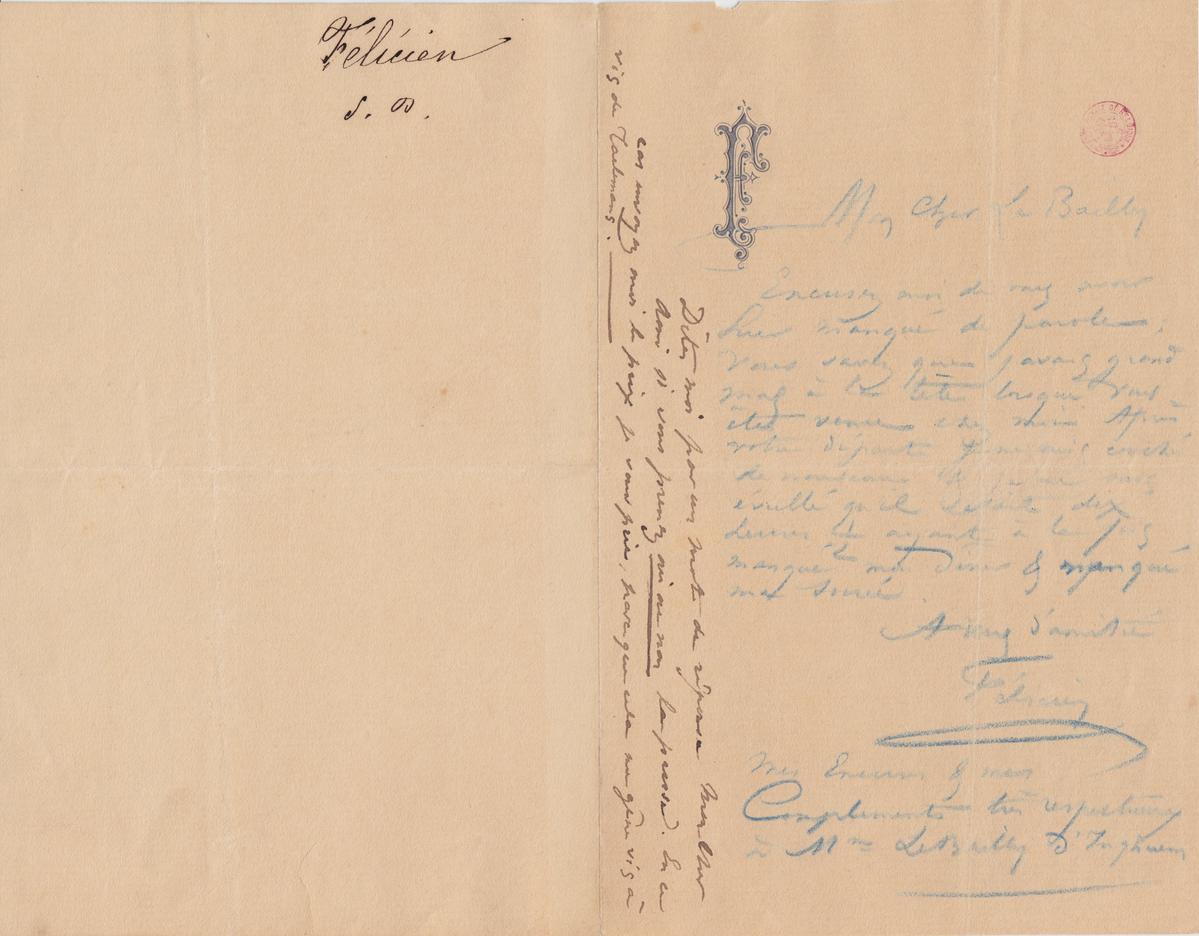 Félicien
s. D.
Mon Cher Le Bailly
Excusez moi de vous avoir
hier manqué de parole,
Vous savez que j'avais grand
mal à la tête lorsque vous
êtes venu chez moi. Après
votre départ je me suis couché
de nouveau & je me suis
éveillé qu'il était dix
heures en ayant à la fois
manqué mon Diner & manqué
ma soirée.
A vous d'amitié
Félicien
Mes Excuses & mes
Compliments très respectueux
à Mme LeBailly D'Inghuem
Dites moi par un mot de réponse mon cher
Ami si vous prenez oui ou non la presse. En ce
cas envoyez moi le prix je vous prie, parce que cela me gêne vis à
vis de Taelemans.